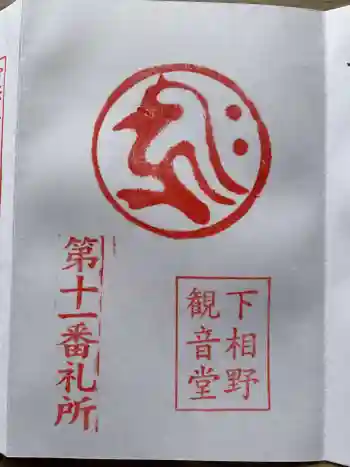 𑖭𑖾
下相野
観音堂
第十一番礼所